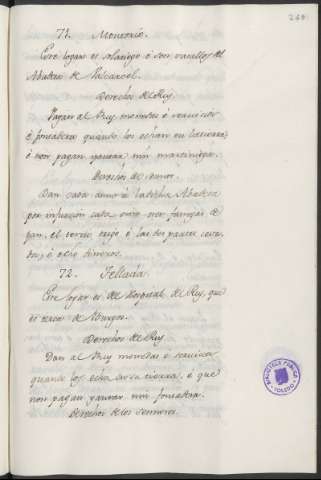 71. Monzorio.
Este logar es solariego é son vasallos del
Abadesa de Valcarcel.
Derechos del Rey.
Pagan al Rey monedas é servicios
é fonsadera quando los echan en la tierra,
é non pagan yantar nin martiniega.
Derechos del Sennor.
Dan cada anno á la dicha Abadesa
por infurcion cada uno tres fanegas de
pan, el tercio trigo é las dos partes ceva-
da, é ocho dineros.
72. Tellada.
Este logar es del Hospital del Rey, que
es cerca de Burgos.
Derechos del Rey
Dan al Rey monedas é servicios
quando los echa en la tierra, é que
non pagan yantar nin fonsadera.
Derechos de los Sennores.
BIBLIOTECA PUBLICA
TOLEDO